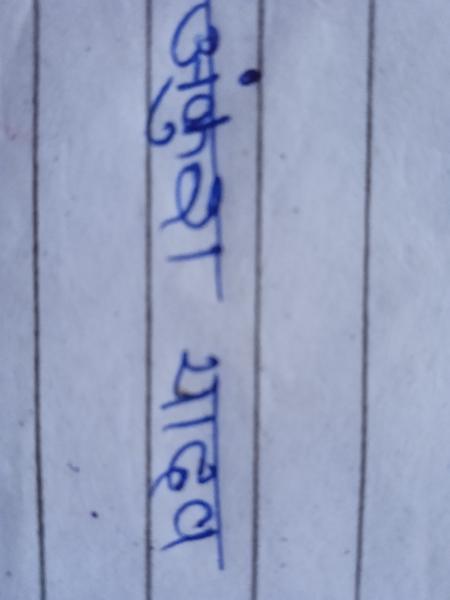 अंकुश यादव